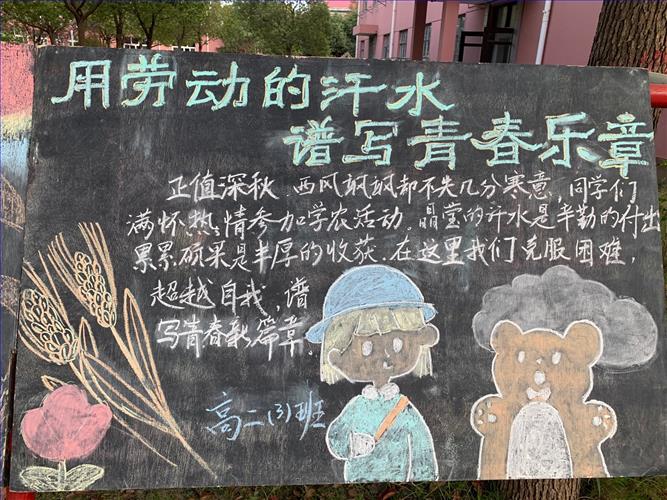 用劳动的汗水
谱写青春乐章
正值深秋.西风飒飒却不失几分寒意,同学们
满怀热情参加学农活动。晶莹的汗水是辛勤的付出
累累硕果是丰厚的收获.在这里我们克服困难,
超越自我,谱
写青春新篇章.
高二(3)班